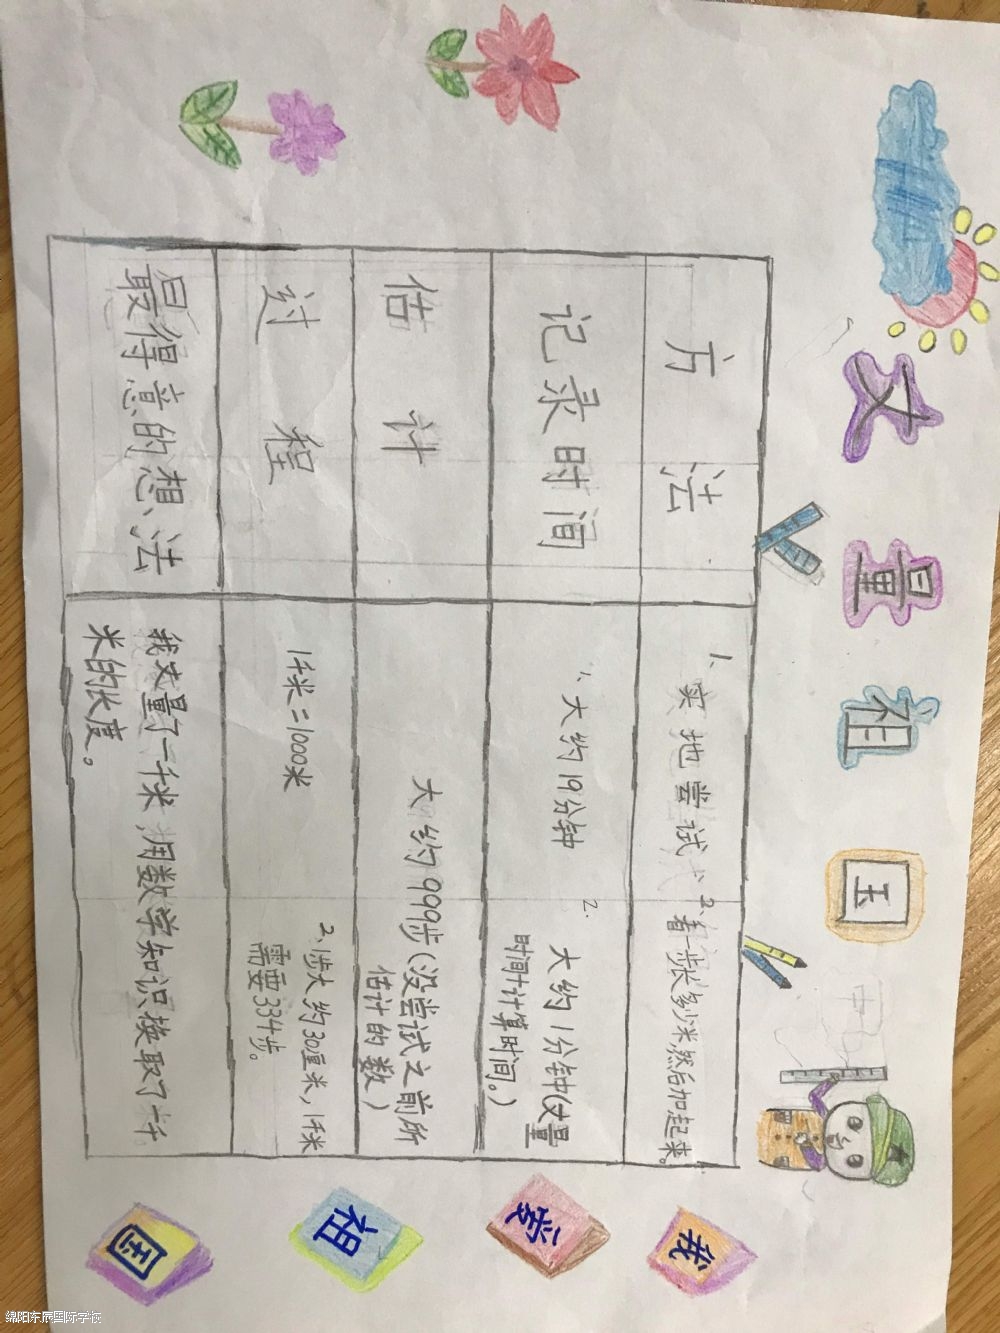 丈量祖国
方法
1、实地尝试、2、看一步长多少米然后加起来。
记录时间
1、大约19分钟
2、大约1分钟(丈量
时间+计算时间。)
估计
大约999步(没尝试之前所
估计的数)
过程
1千米=1000米
2、1步大约30厘米,1千米
需要334步。
最得意的想法
我丈量了一千米,用数学知识换取了一千
米的长度。
我爱祖国
绵阳东辰国际学校